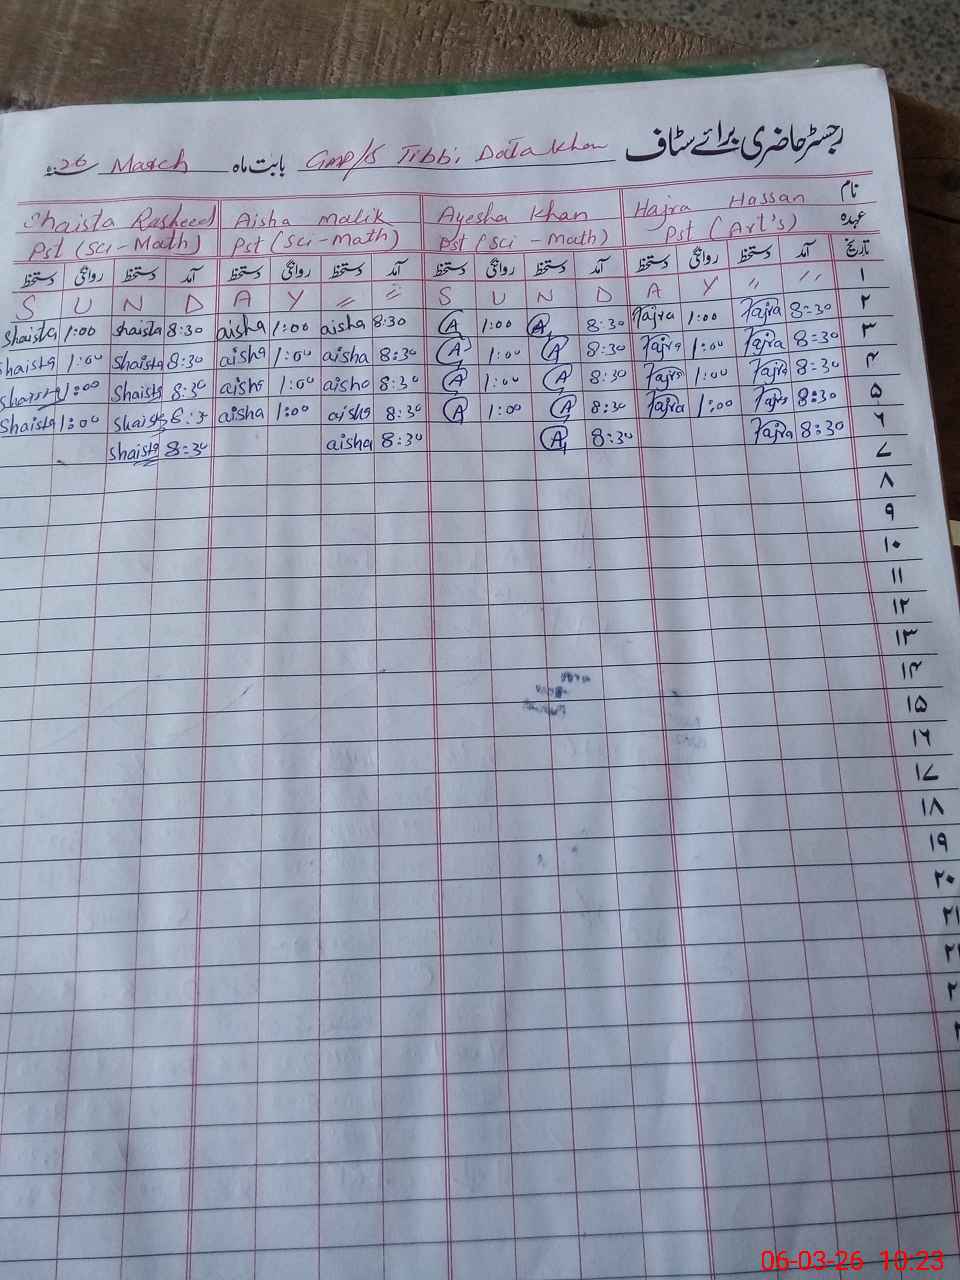 رجسٹر حاضری برائے سٹاف Gmp/s Tibbi Dotta khan بابت ماہ March 26 سنہ
نام Hajra Hassan Ayesha Khan Aisha malik Shaista Rasheed
عہدہ Pst (Art's) Pst (Sci - Math) Pst (Sci - math) Pst (Sci - Math)
تاریخ آمد دستخط روانگی دستخط آمد دستخط روانگی دستخط آمد دستخط روانگی دستخط آمد دستخط روانگی دستخط
S U N D A Y 〃 〃 S U N D A Y 〃 〃 ۱
Shaista 1:00 Shaista 8:30 aisha 1:00 aisha 8:30 A 1:00 A 8:30 Hajra 1:00 Hajra 8:30 ۲
Shaista 1:00 Shaista 8:30 aisha 1:00 aisha 8:30 A 1:00 A 8:30 Hajra 1:00 Hajra 8:30 ۳
Shaista 1:00 Shaista 8:30 aisha 1:00 aisha 8:30 A 1:00 A 8:30 Hajra 1:00 Hajra 8:30 ۴
Shaista 1:00 Shaista 8:30 aisha 1:00 aisha 8:30 A 1:00 A 8:30 Hajra 1:00 Hajra 8:30 ۵
Shaista 8:30 aisha 8:30 A 8:30 Hajra 8:30 ۶
۷
۸
۹
۱۰
۱۱
۱۲
۱۳
۱۴
۱۵
۱۶
۱۷
۱۸
۱۹
۲۰
۲۱
06-03-26 10:23